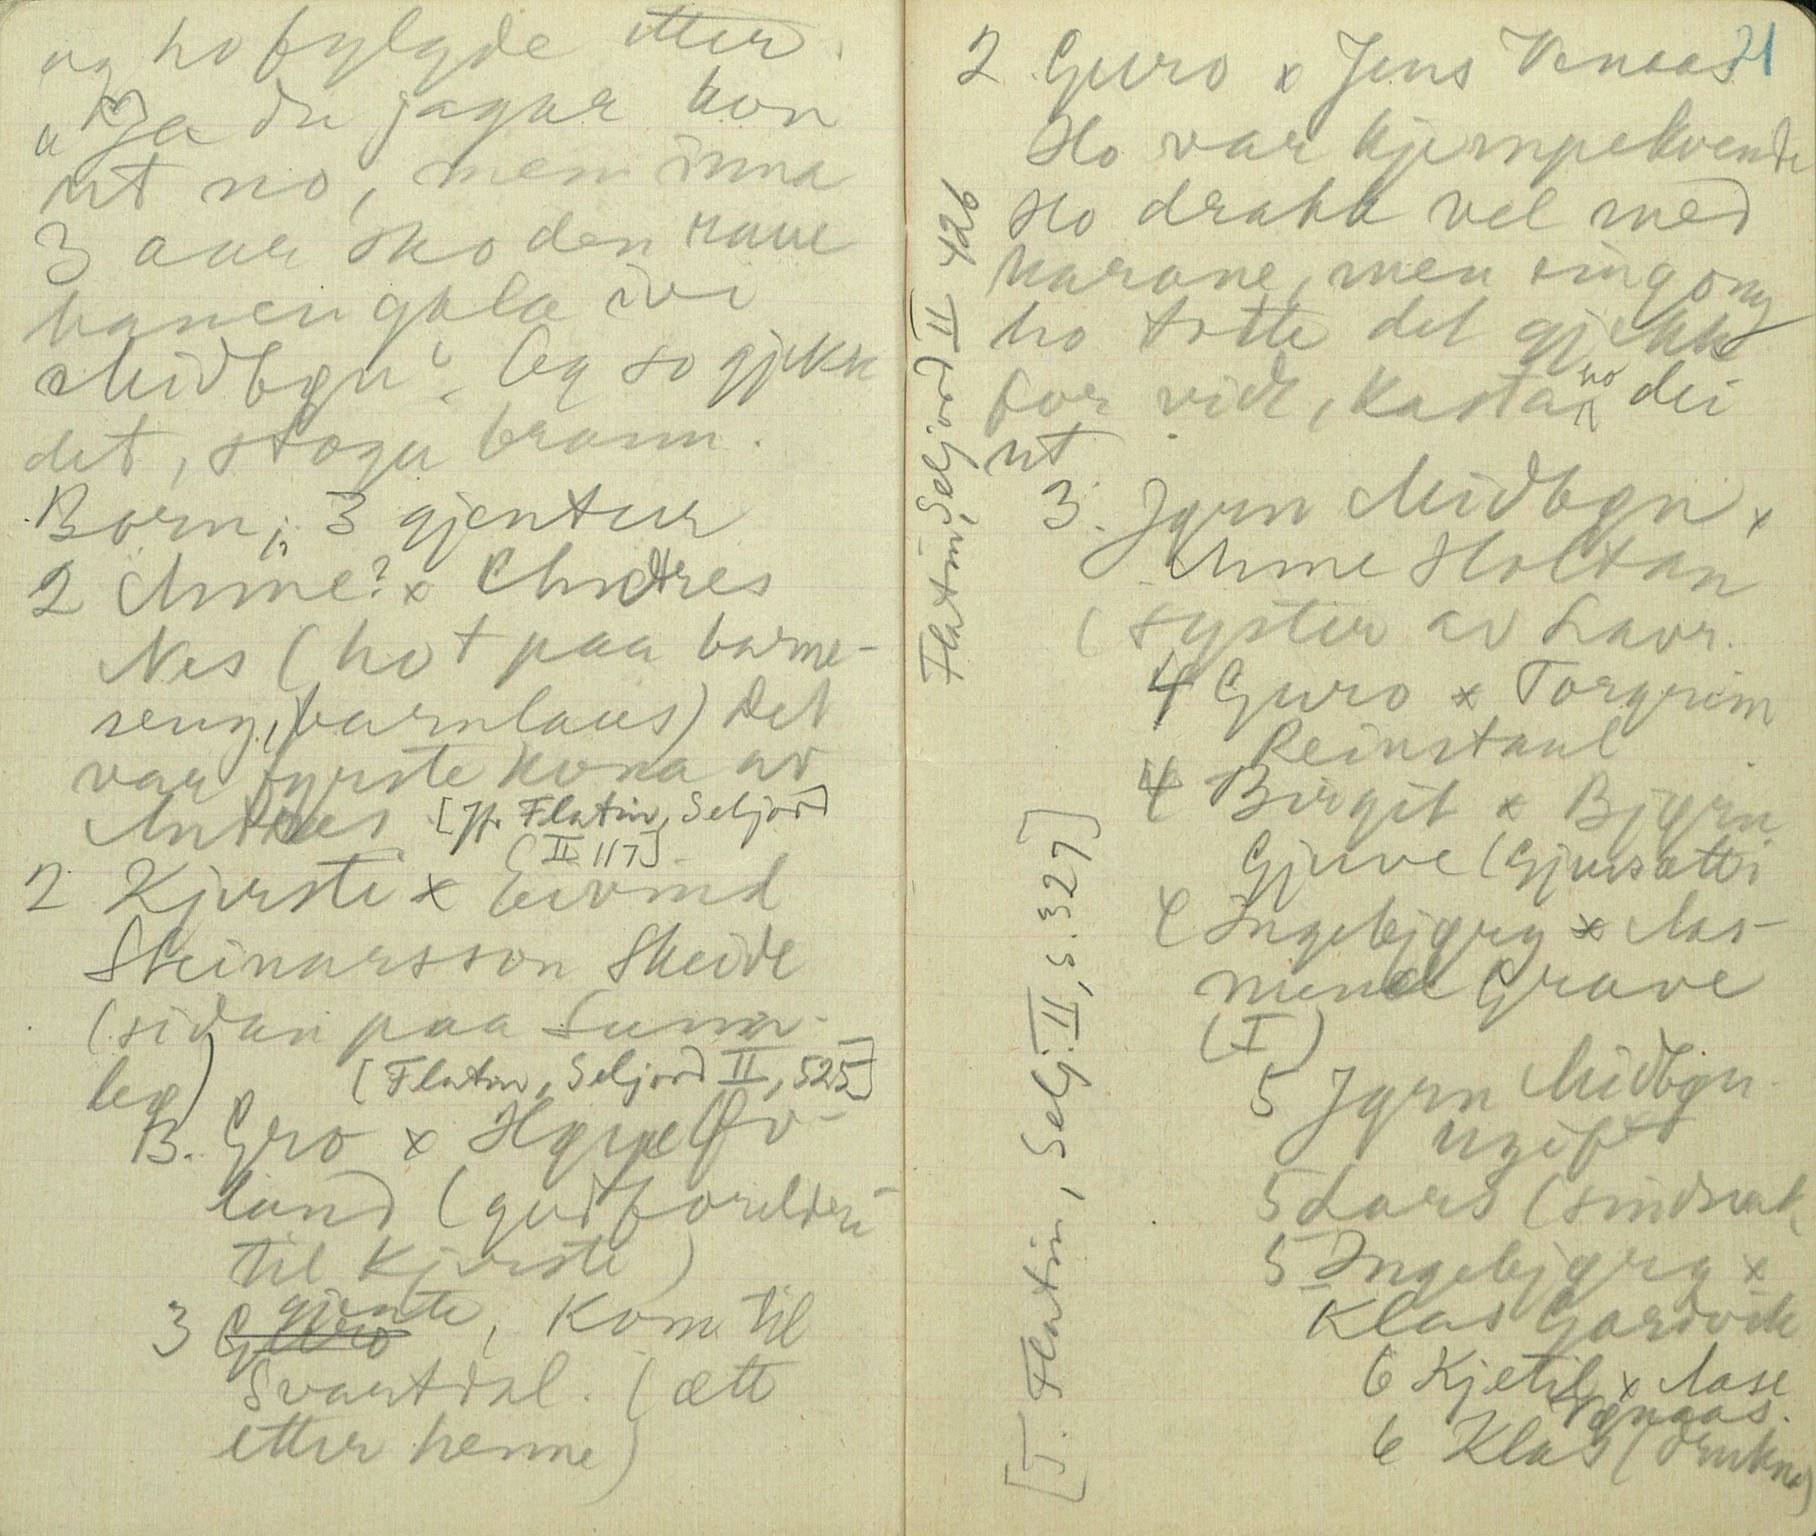 og ho fylgde etter.
"Ja du jagar kon
ut no, men inna
3 aar sko den raue
hanen gala ivi
Midbøn". Og so gjekk
det, stogu brann.
Born; 3 gjentur
2 Anne? x Andres
Nes (ho † paa barne-
seng, barnlaus) Det
var fyrste kona av
Andres [jf. Flatin, Seljord
II 117]
2 Kjersti x Eivind
Steinarsson Skeide
(sidan paa Sunn-
leg) [Flatin, Seljord II, 525]
3. Gro x
land (gudforeldri
til Kjersti)
3 Guro gjente, kom til
Svartdal. (ætt
etter henne)
21
2 Guro x Jens Venaas
Ho var kjempekvende
Ho drakk vel med
karane, men eingong
ho totte det gjekk
for vidt, kasta ho dei
ut
Flatin, Seljord II 426
3. Jørn Midbøn x
Anne Holtan
(syster av Lavr.
4 Guro x Torgrim
Reinstaul
4 Birgit x Bjørn
Gjuve (Gjuvsætti
4 Ingebjørg x Aas-
mund Grave
(I)
5 Jørn Midbøn
ugift
5 Lars (sindssak
5 Ingebjørg x
Klas Gardvik
6 Kjetil x Aase
6 Klas (drukna)
[T. Flatin, Selj. II, s. 327]